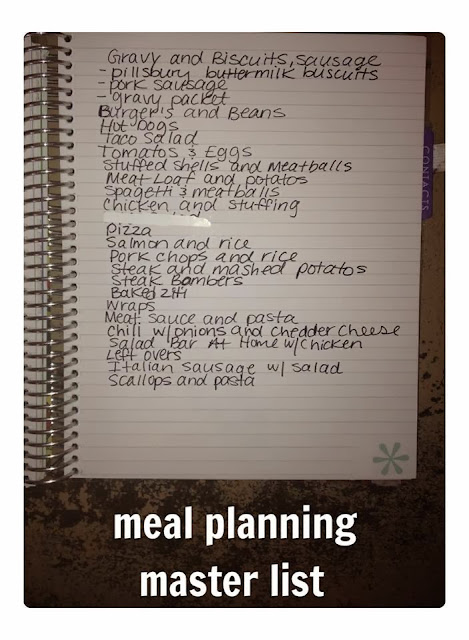 Gravy and Biscuits, sausage
- pillsbury buttermilk buscuits
- pork sausage
- gravy packet
Burger's and Beans
Hot Dogs
Taco Salad
Tomatos & Eggs
Stuffed shells and Meatballs
Meat Loaf and potatos
Spagetti & meatballs
Chicken and stuffing
Pizza
Salmon and rice
Pork chops and rice
Steak and mashed potatos
Steak Bombers
Baked ziti
Wraps
Meat sauce and pasta
Chili w/onions and chedder cheese
Salad Bar At Home w/chicken
Left overs
Italian Sausage w/ salad
Scallops and pasta
CONTACTS
meal planning
master list